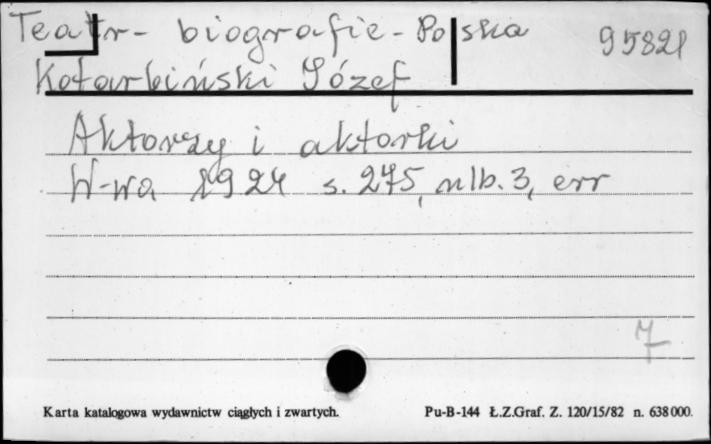 Teatr - biografie - Polska 95821
Kotarbiński Józef
Aktorzy i aktorki
W-wa 1924 s. 275, nlb. 3, err
7
Karta katalogowa wydawnictw ciągłych i zwartych. Pu-B-144 Ł.Z.Graf. Z. 120/15/82 n. 638000.